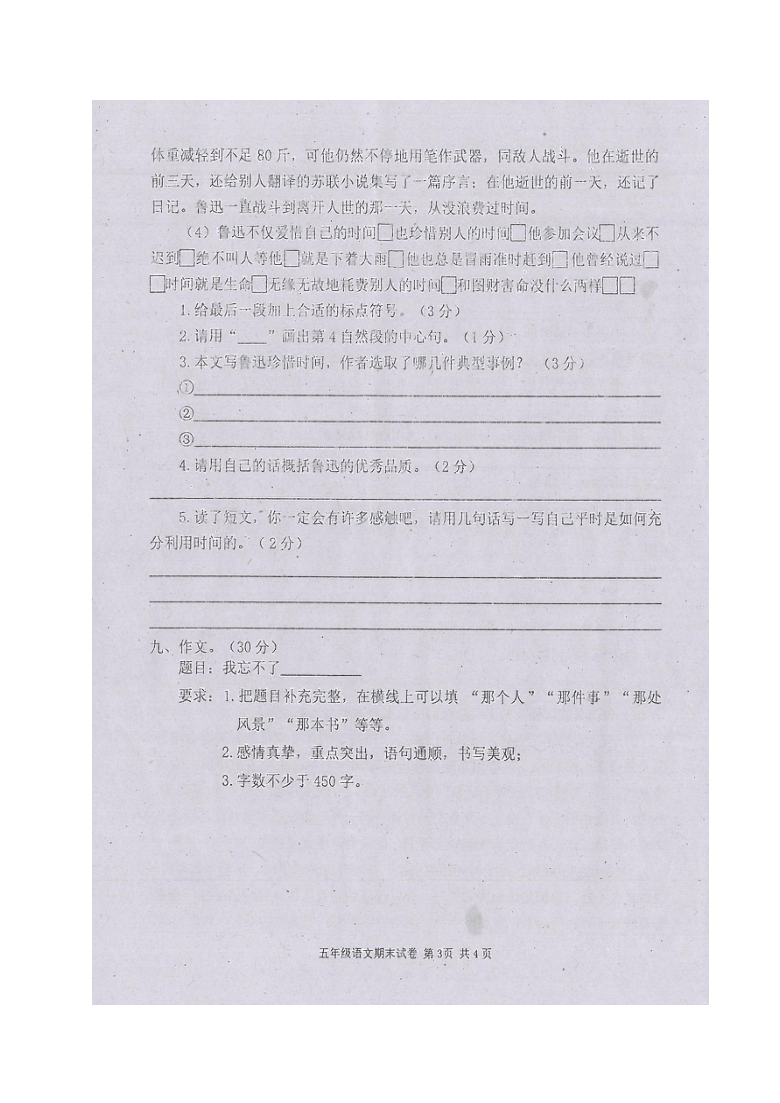 体重减轻到不足 80 斤，可他仍然不停地用笔作武器，同敌人战斗。他在逝世的
前三天，还给别人翻译的苏联小说集写了一篇序言；在他逝世的前一天，还记了
日记。鲁迅一直战斗到离开人世的那一天，从没浪费过时间。
（4）鲁迅不仅爱惜自己的时间□也珍惜别人的时间□他参加会议□从来不
迟到□绝不叫人等他□就是下着大雨□他也总是冒雨准时赶到□他曾经说过□
□时间就是生命□无缘无故地耗费别人的时间□和图财害命没什么两样□□
1.给最后一段加上合适的标点符号。（3 分）
2.请用“____”画出第 4 自然段的中心句。（1 分）
3.本文写鲁迅珍惜时间，作者选取了哪几件典型事例？ （3 分）
①
②
③
4.请用自己的话概括鲁迅的优秀品质。（2 分）
5.读了短文，你一定会有许多感触吧，请用几句话写一写自己平时是如何充
分利用时间的。（2 分）
九、作文。（30 分）
题目：我忘不了__________
要求：1.把题目补充完整，在横线上可以填 “那个人”“那件事”“那处
风景”“那本书”等等。
2.感情真挚，重点突出，语句通顺，书写美观；
3.字数不少于 450 字。
五年级语文期末试卷 第 3页 共 4 页